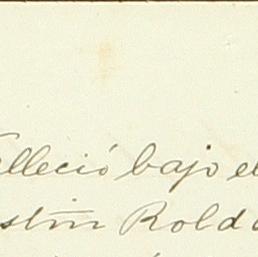 elleció bajo el
stín Rold